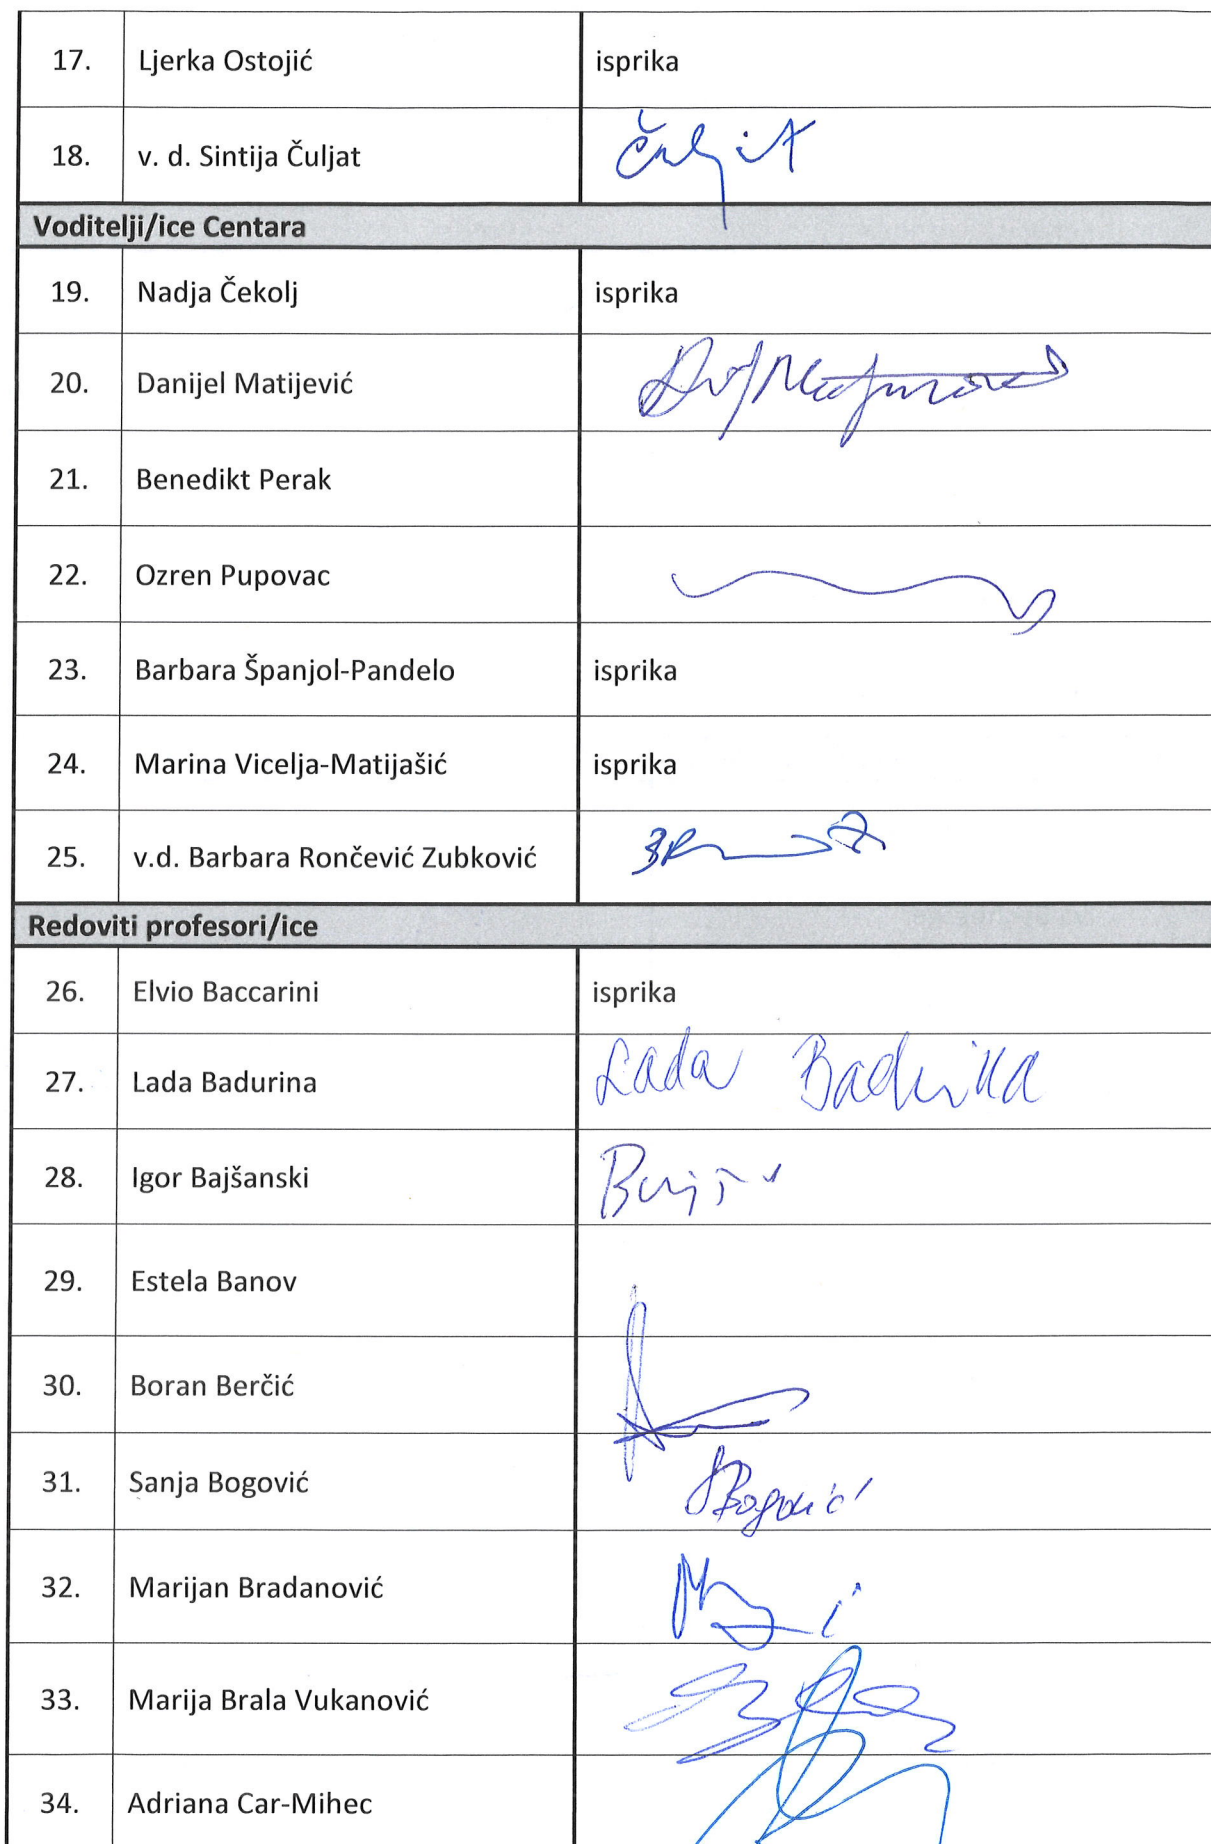 17. Ljerka Ostojić isprika
18. v. d. Sintija Čuljat Čuljat
Voditelji/ice Centara
19. Nadja Čekolj isprika
20. Danijel Matijević
21. Benedikt Perak
22. Ozren Pupovac
23. Barbara Španjol-Pandelo isprika
24. Marina Vicelja-Matijašić isprika
25. v.d. Barbara Rončević Zubković
Redoviti profesori/ice
26. Elvio Baccarini isprika
27. Lada Badurina Lada Badurina
28. Igor Bajšanski
29. Estela Banov
30. Boran Berčić
31. Sanja Bogović SBogović
32. Marijan Bradanović
33. Marija Brala Vukanović
34. Adriana Car-Mihec